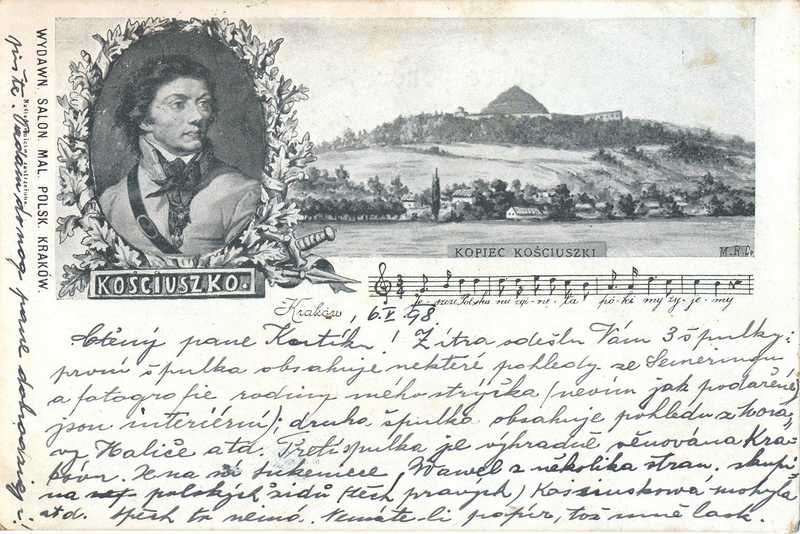 WYDAWN. SALON. MAL. POLSK. KRAKÓW.
KOŚCIUSZKO.
KOPIEC KOŚCIUSZKI
M.R.C.
Je-szcze Polska nie zgi-nę-ła pó-ki my ży-je-my
Kraków, 6.V.98
Ctěný pane ! Zítra odešlu Vám 3 špulky;
první špulka obsahuje některé pohledy ze Semeringu
a fotografie rodiny mého strýčka (nevím jak podařené,
jsou interiérní); druhá špulka obsahuje pohledů z Mora-
vy Haliče atd. Třetí špulka je výhradně věnována Kra-
kovu. Je na ní Sukenice, Wawel z několika stran, skupi-
na polských židů (těch pravých) Kosciuskova mohyla
atd. Spěch to nemá. Nemáte-li papír, tož mně lask.
pište. do nog pane